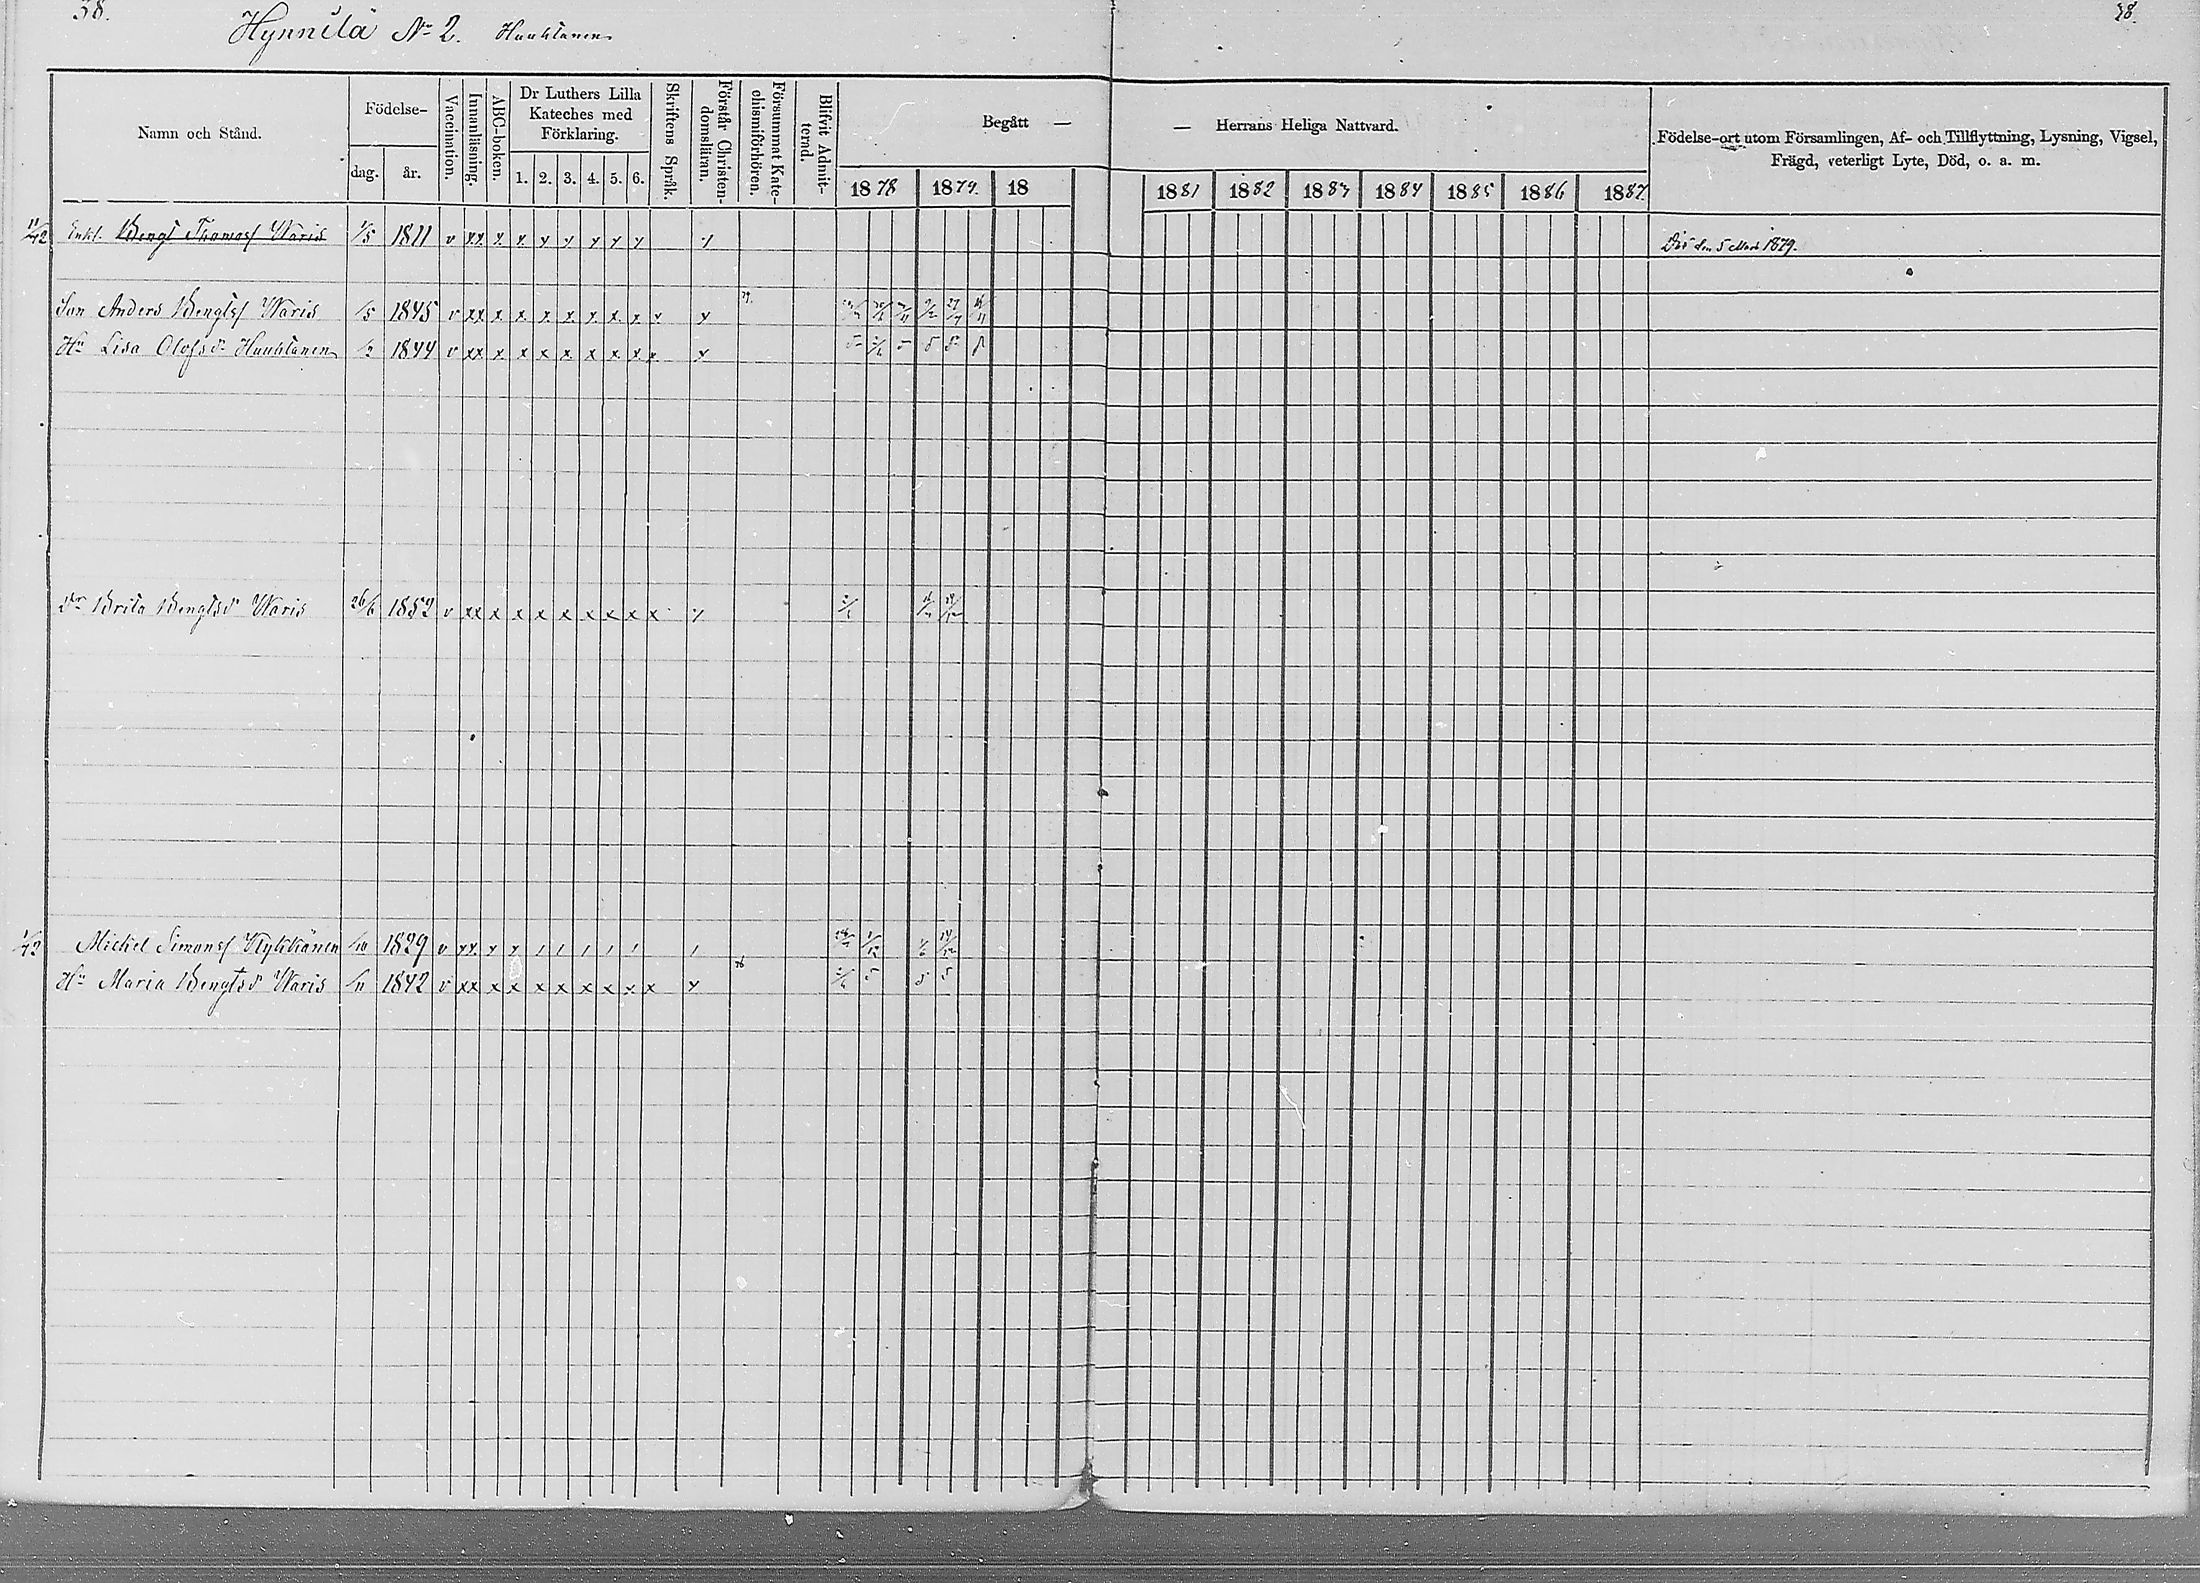 38.
Hynnilä No 2. Huuhtanen
38.
Namn och Stånd.
Födelse-
dag.
år.
Vaccination.
Innanläsning.
ABC-boken.
Dr Luthers Lilla Kateches med Förklaring.
1. 2. 3. 4. 5. 6.
Skriftens Språk.
Förstår Christen-domsläran.
Försummat Kate-chismiförhören.
Blifvit Admit-terad.
Begått — — Herrans Heliga Nattvard.
1878 1879. 18 1881 1882 1883 1884 1885 1886 1887.
Födelse-ort utom Församlingen, Af- och Tillflyttning, Lysning, Vigsel, Frägd, veterligt Lyte, Död, o. a. m.
Enkl. Bengt Thomass Waris 1/5 1811 v xx x x y y y y y y Död den 5 Mars 1879.
Son Anders Bengtss Waris /5 1845 v xx x x x x x x x x x
Hu Lisa Olofsdr Huuhtanen /2 1844 v xx x x x x x x x x x
Dr Brita Bengtsdr Waris 26/6 1852 v xx x x x x x x x x
Michel Simonss /10 1829 v xx
Hu Maria Bengtsdr Waris /11 1842 v xx x x x x x x x x